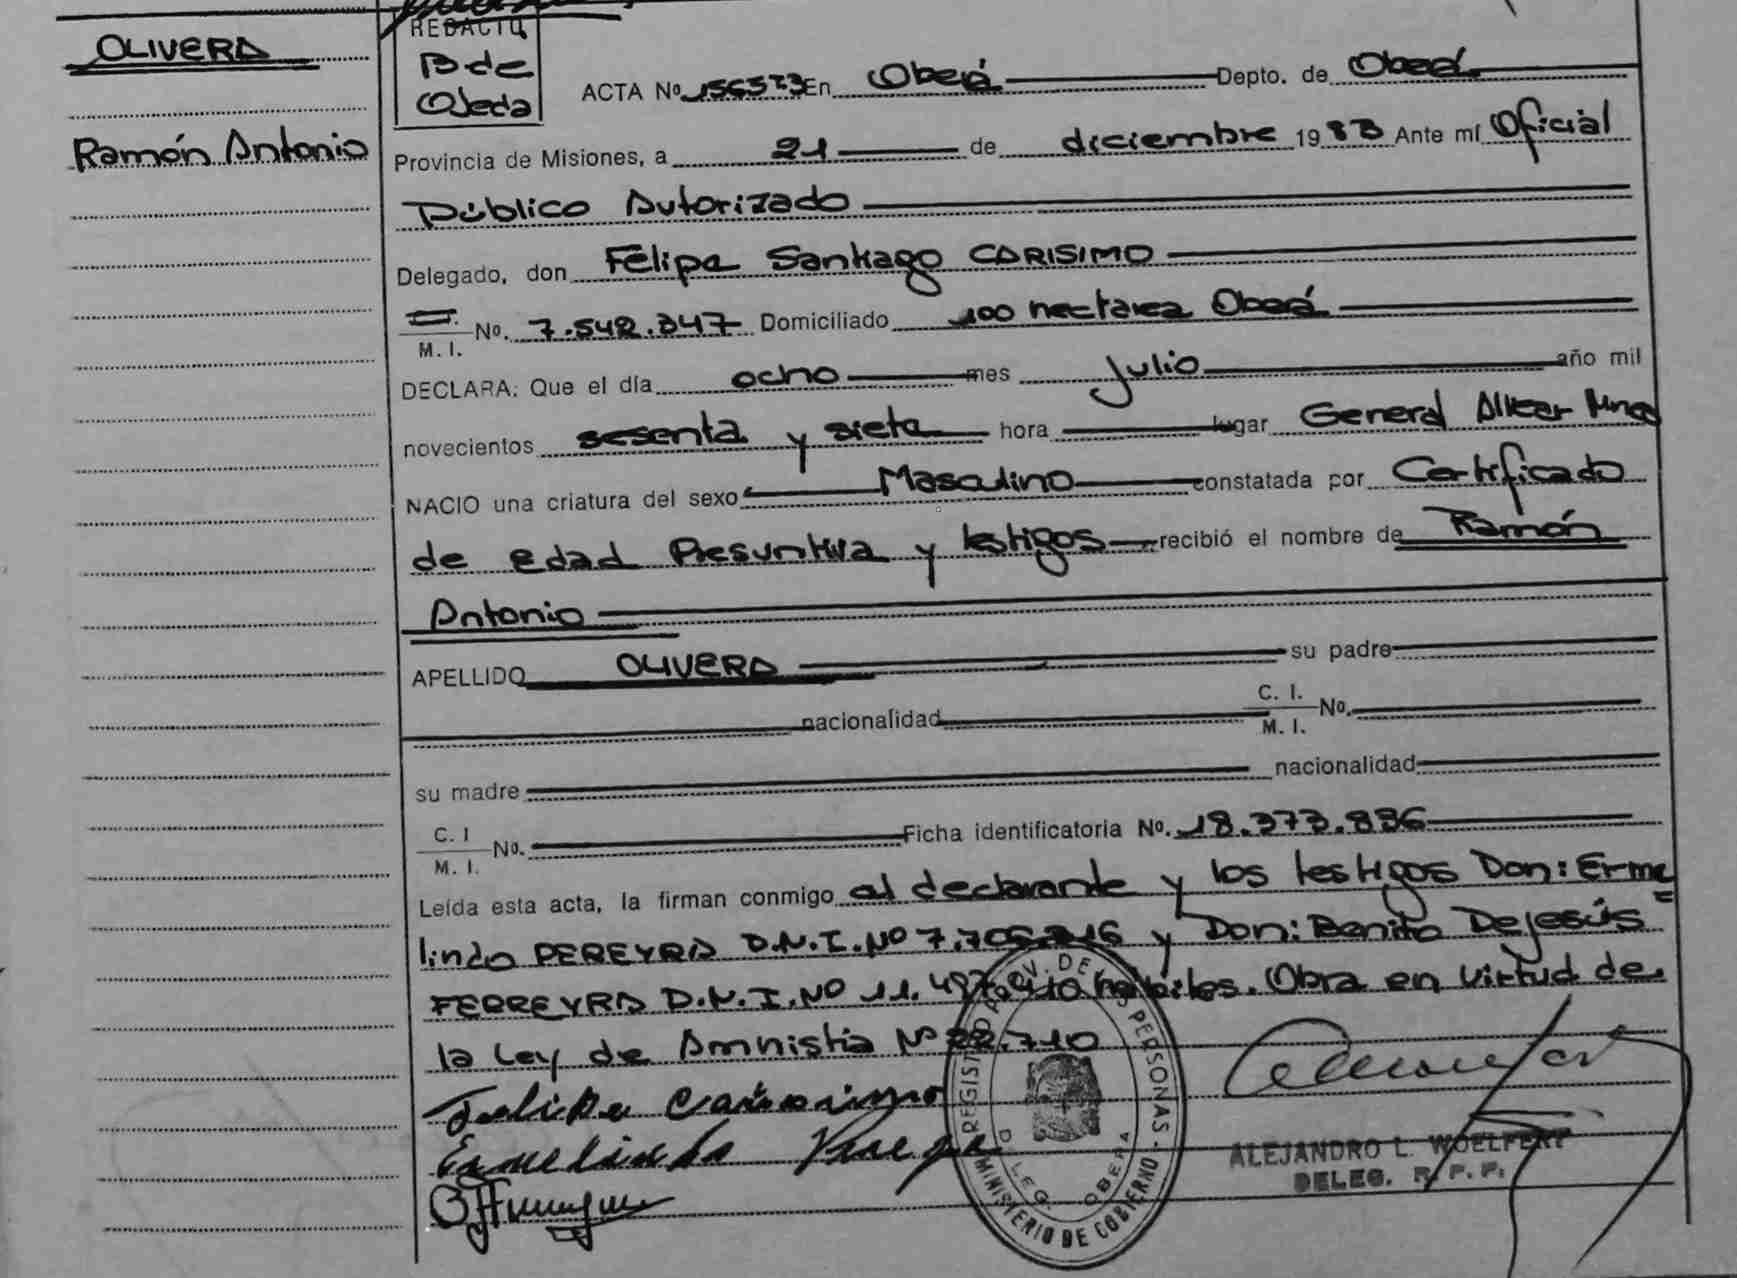 OLIVERA
Ramón Antonio
REDACTO
B de
Ojeda
ACTA No. 156573 En Oberá Depto. de Oberá
Provincia de Misiones, a 21 de diciembre 1983 Ante mí Oficial
Público Autorizado
Delegado, don Felipe Santiago CARISIMO
M. I. No. 7.542.347 Domiciliado 100 hectarea Oberá
DECLARA: Que el día ocho mes Julio año mil
novecientos sesenta y siete hora lugar General Alvear Mnes
NACIO una criatura del sexo Masculino constatada por Certificado
de edad Presuntiva y testigos recibió el nombre de Ramón
Antonio
APELLIDO OLIVERA su padre
nacionalidad C. I. M. I. No.
su madre nacionalidad
C. I M. I. No. Ficha identificatoria No. 18.373.836
Leída esta acta, la firman conmigo el declarante y los testigos Don: Erme
lindo PEREYRA D.N.I. Nº 7.706. y Don: Benito Dejesús
FERREYRA D.N.I. Nº 11. habiles. Obra en virtud de
la Ley de Amnistia Nº 22.710
REGISTRO PROV. DE PERSONAS
DELEG. OBERA
MINISTERIO DE GOBIERNO
ALEJANDRO L. WOELFERT
DELEG. R. P. P.